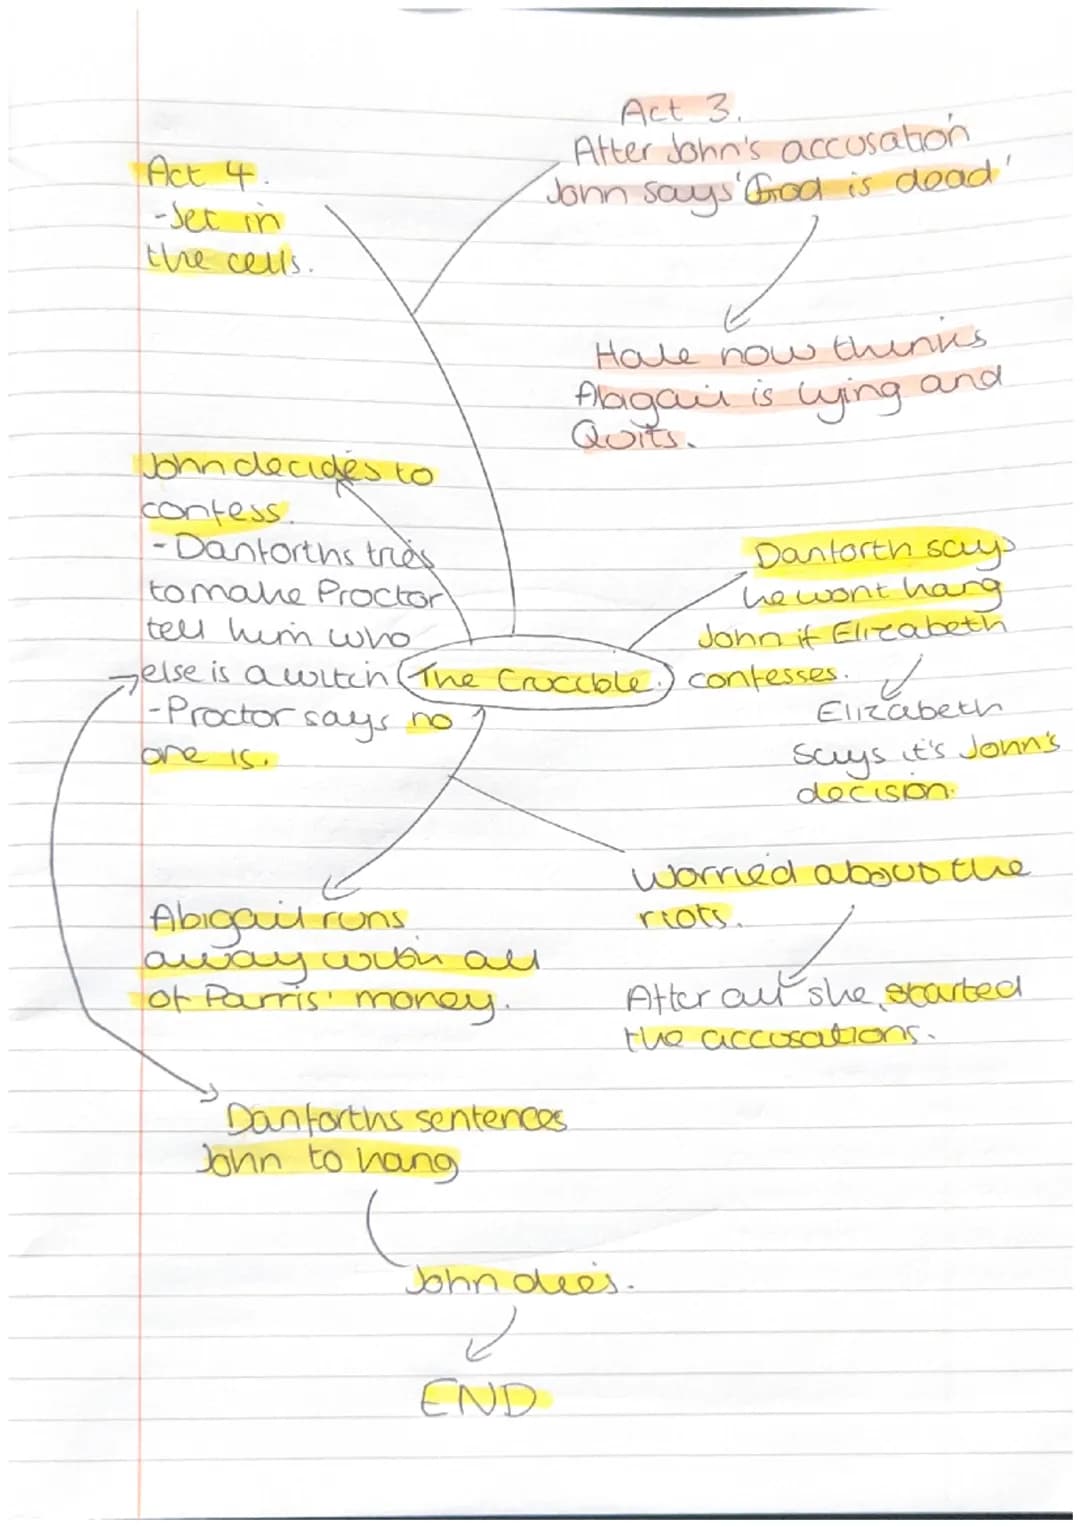 Act 3.
After John's accusation
John says 'God is dead'
Hale now thinks
Abagail is lying and
Quits.
Act 4.
-Set in
the cells.
John decides to
confess.
-Danforths tries
to make Proctor
tell him who
else is a witch
-Proctor says no
one is.
The Crucible.
Danforth says
he wont hang
John if Elizabeth
confesses.
Elizabeth
says it's John's
decision.
Abigail runs
away with all
of Parris' money.
Worried about the
riots.
After all she started
the accusations.
Danforths sentences
John to hang
John dies.
END